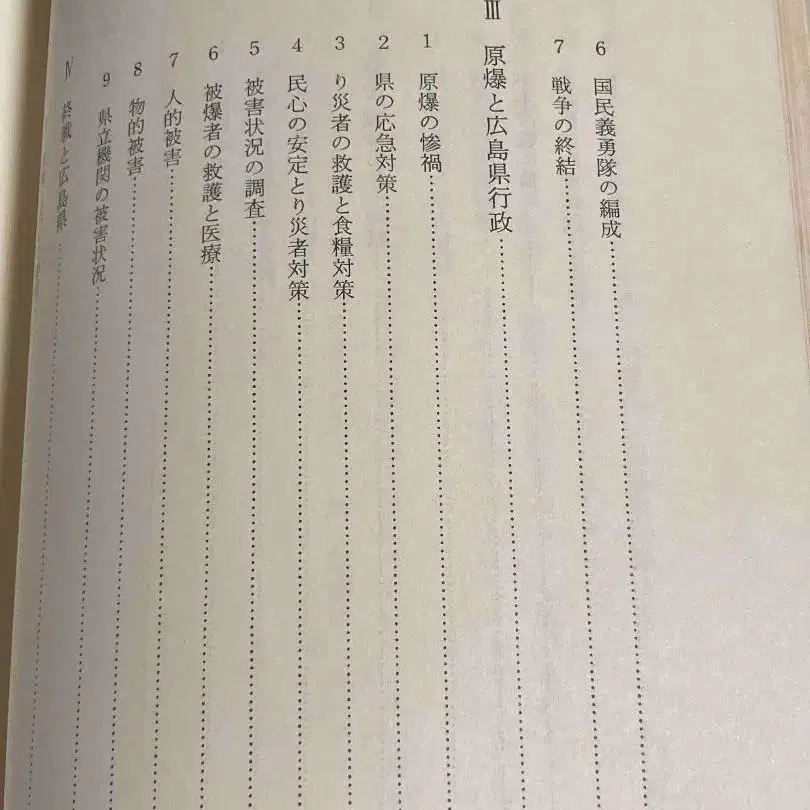 6 国民義勇隊の編成……
7 戦争の終結……
Ⅲ 原爆と広島県行政……
1 原爆の惨禍……
2 県の応急対策……
3 り災者の救護と食糧対策……
4 民心の安定とり災者対策……
5 被害状況の調査……
6 被爆者の救護と医療……
7 人的被害……
8 物的被害……
9 県立機関の被害状況……
Ⅳ 終戦と広島県……